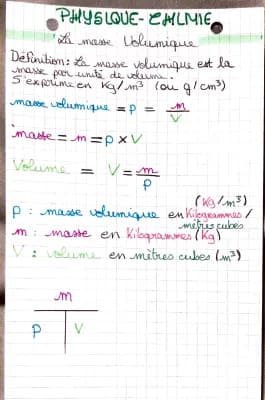 PHYSIQUE-CHIMIE
La masse Volumique
Définition: La masse volumique est la
masse par unité de volume.
S'exprime en Kg/m³ (ou g/cm³)
masse volumique = p = m/V
masse = m = p x V
Volume = V = m/p
(Kg/m³)
p : masse volumique en Kilogrammes/
mètres cubes
m : masse en Kilogrammes (Kg)
V : volume en mètres cubes (m³)
m
p V